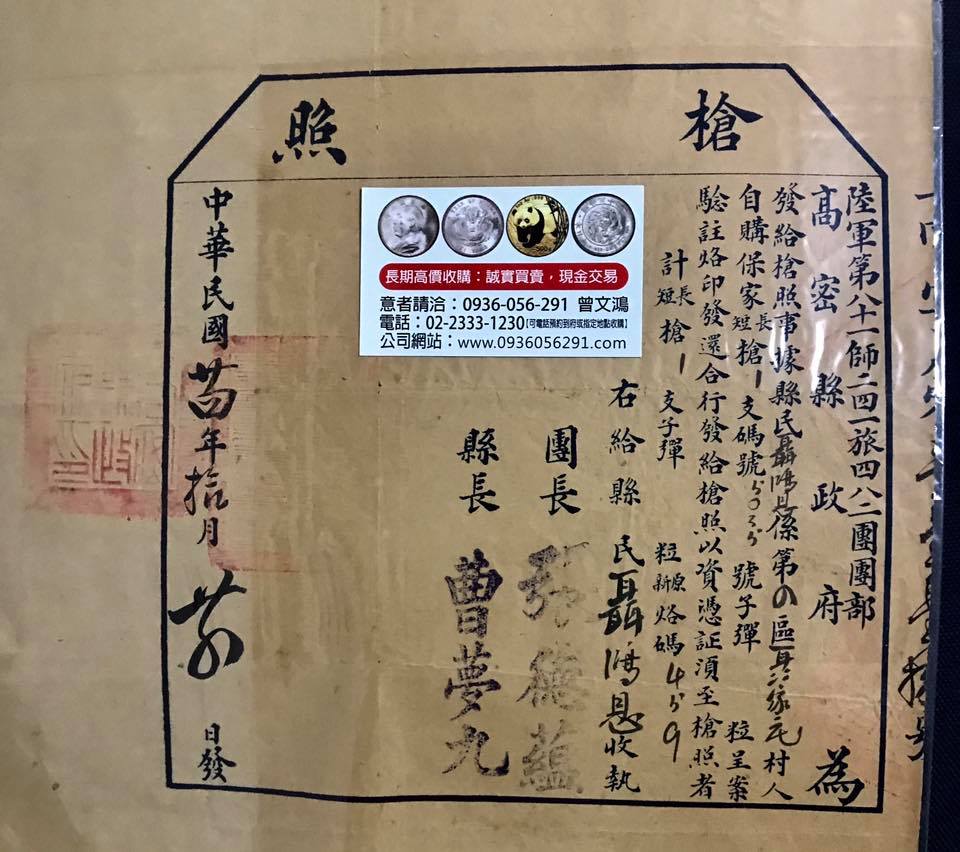 槍照
陸軍第八十一師二四一旅四八二團團部
高密縣政府為
發給槍照事據縣民聶鴻恩係第 區 村人
自購保家長短槍1支碼號 號子彈 粒呈案
驗註烙印發還合行發給槍照以資憑証須至槍照者
計長短槍1支子彈 粒新原烙碼 9
右給縣民聶鴻恩收執
團長 張德蘊
縣長 曹夢九
中華民國 年拾月 日發
長期高價收購：誠實買賣，現金交易
意者請洽：0936-056-291 曾文鴻
電話：02-2333-1230【可電話預約到府或指定地點收購】
公司網站：www.0936056291.com